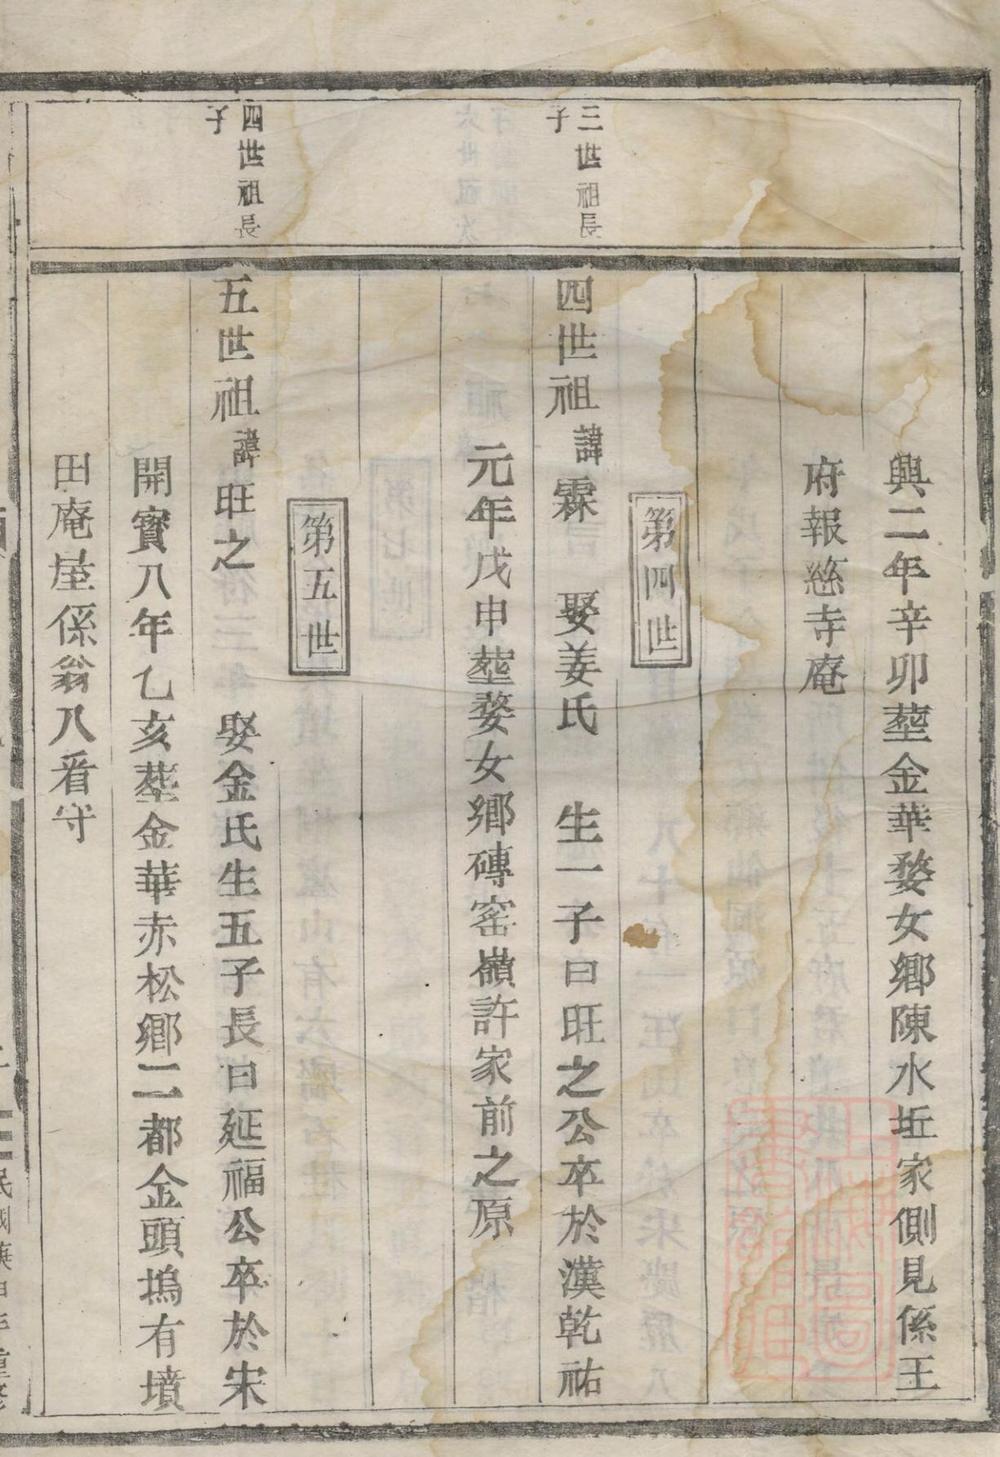 興二年辛卯塟金華婺女鄉陳水坵家側見係王
府報慈寺庵
第四世
三世祖長
子
四世祖諱霖 娶姜氏 生一子曰旺之公卒於漢乾祐
元年戊申塟婺女鄉磚窑嶺許家前之原
第五世
四世祖長
子
五世祖諱旺之 娶金氏生五子長曰延福公卒於宋
開寶八年乙亥塟金華赤松鄉二都金頭塢有墳
田庵屋係翁八看守